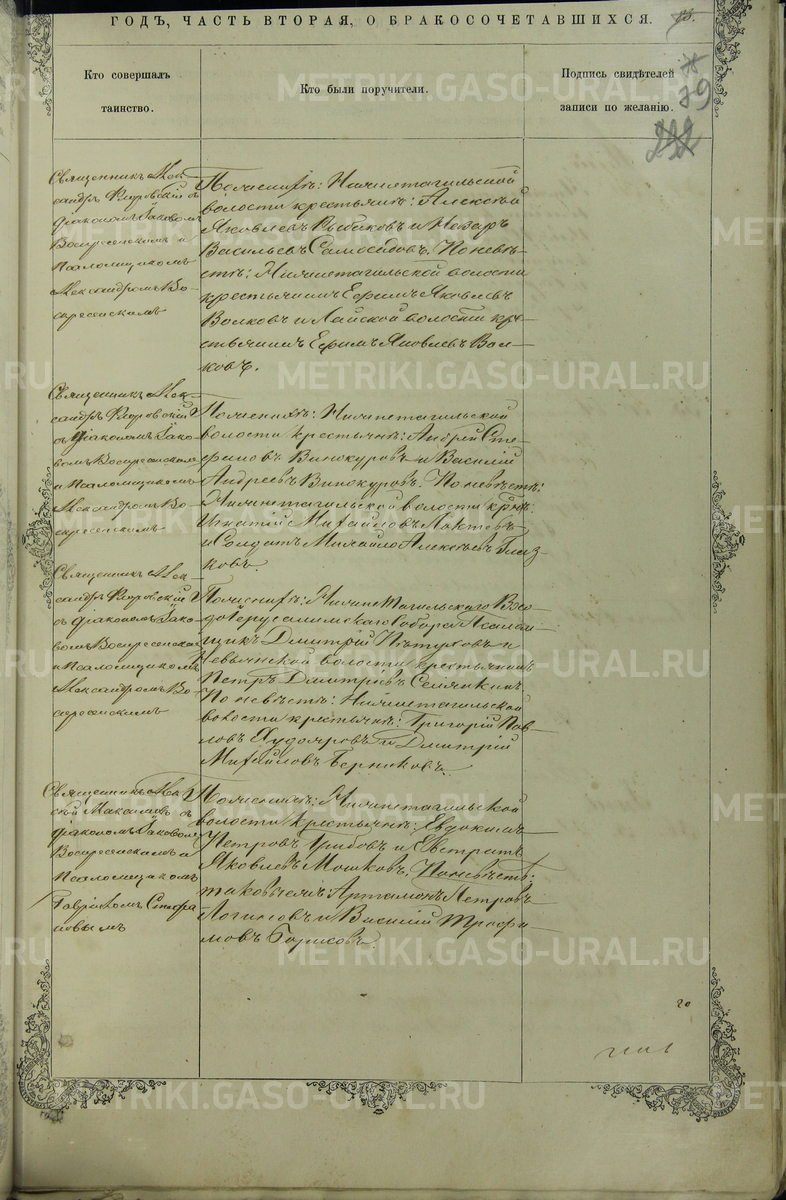 ГОДЪ, ЧАСТЬ ВТОРАЯ, О БРАКОСОЧЕТАВШИХСЯ.
Кто совершалъ
таинство.
Кто были поручители.
Подпись свидѣтелей
записи по желанію.
79
Священникъ Алек-
сандръ
діакономъ Іаковомъ
Воскресенскимъ и
Псаломщикомъ
Александромъ Во-
скресенскимъ
По женихѣ: Нижнетагильской
волости крестьяне: Алексѣй
Яковлевъ Рыбаковъ и Назаръ
Васильевъ Самосадовъ. По невѣ-
стѣ: Нижнетагильской волости
крестьянинъ Ефимъ Яковлевъ
Волковъ и Лайской волости кре-
стьянинъ Ефимъ Яковлевъ Вол-
ковъ.
Священникъ Алек-
сандръ
съ діакономъ Іако-
вомъ Воскресенскимъ
и Псаломщикомъ
Александромъ Во-
скресенскимъ
По женихѣ: Нижнетагильской
волости крестьяне: Андрей Сте-
фановъ Винокуровъ и Василій
Андреевъ Винокуровъ. По невѣстѣ:
Нижнетагильской волости
Игнатій Михайловъ
и Солдатъ Михайло Алексѣевъ Глаз-
ковъ.
Священникъ Алек-
сандръ
съ діакономъ Іако-
вомъ Воскресенскимъ
и Псаломщикомъ
Александромъ Во-
скресенскимъ
По женихѣ: Нижнетагильскаго Вхо-
доіерусалимскаго Собора Псалом-
щикъ Дмитрій Пѣтуховъ и
Невьянской волости крестьянинъ
Петръ Дмитріевъ
По невѣстѣ: Нижнетагильской
волости крестьяне: Григорій Пав-
ловъ Худояровъ и Дмитрій
Михайловъ
Священникъ Алек-
сѣй
діакономъ Іаковомъ
Воскресенскимъ и
Псаломщикомъ
Стефа-
новымъ
По женихѣ: Нижнетагильской
волости крестьяне: Евдокимъ
Петровъ Грибовъ и Евстратъ
Яковлевъ Мошковъ. По невѣстѣ:
таковыеже Артамонъ Петровъ
Логиновъ и Василій Трофи-
мовъ Борисовъ.
METRIKI.GASO-URAL.RU